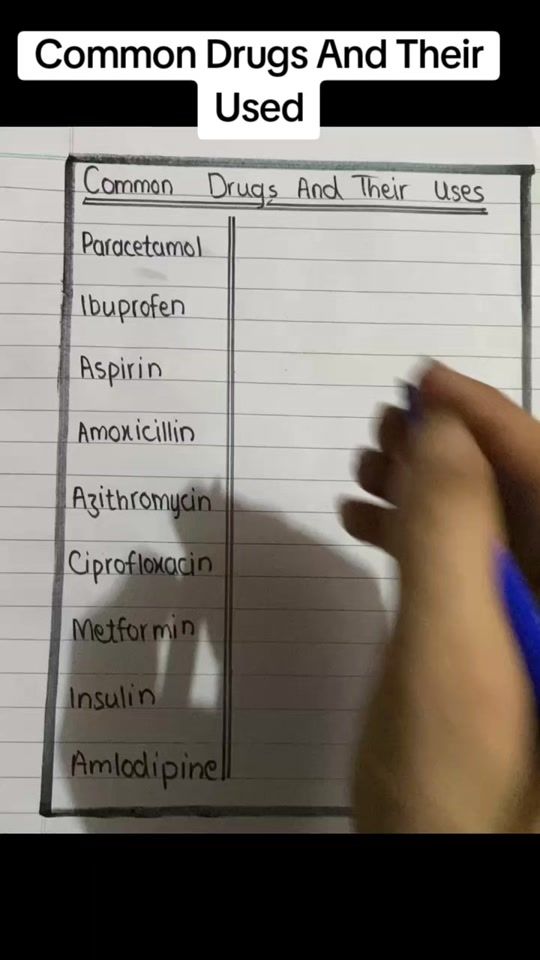 Common Drugs And Their
Used
Common Drugs And Their Uses
Paracetamol
Ibuprofen
Aspirin
Amoxicillin
Azithromycin
Ciprofloxacin
Metformin
Insulin
Amlodipine